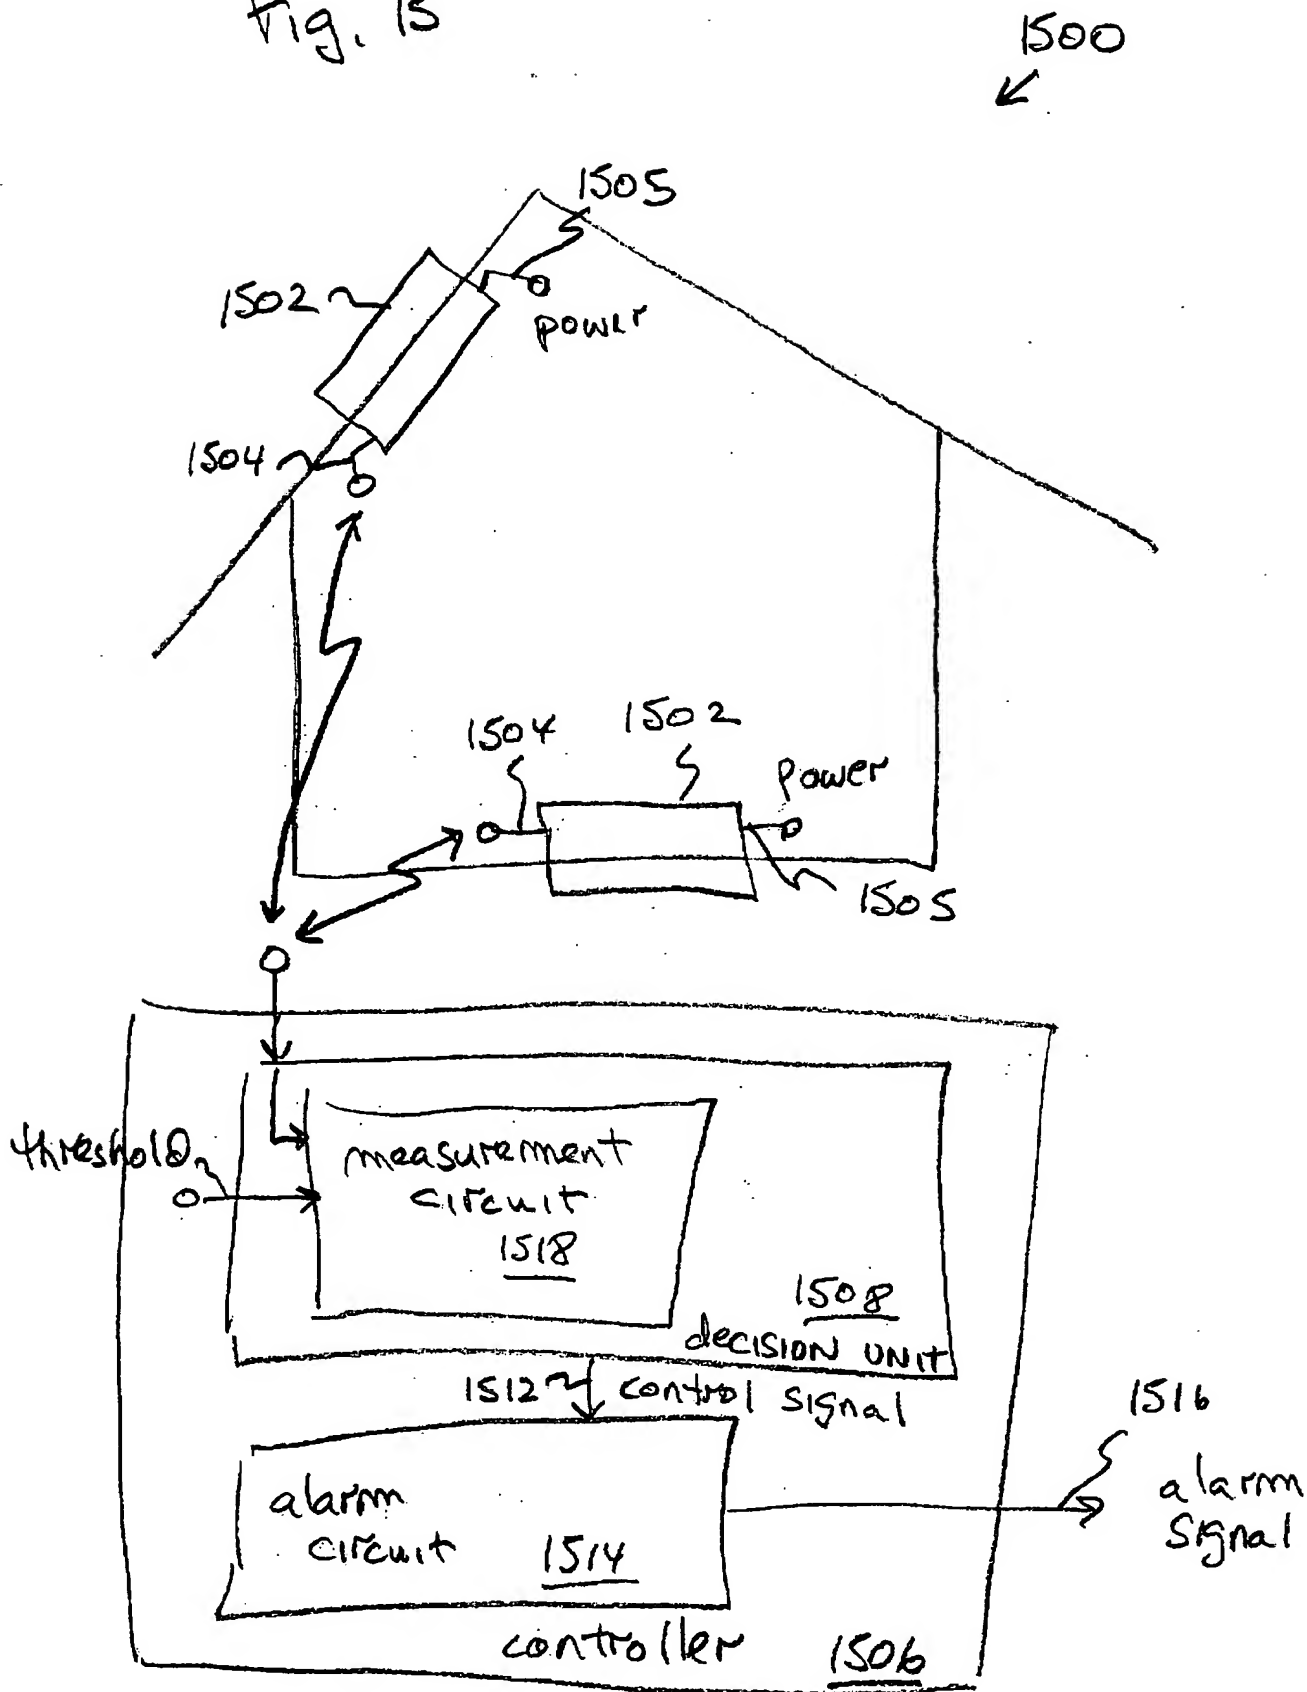 Fig. 15
1500
1505
1502
power
1504
1504
1502
power
1505
threshold
measurement
circuit
1518
1508
decision unit
1512
control signal
1516
alarm
signal
alarm
circuit
1514
controller
1506